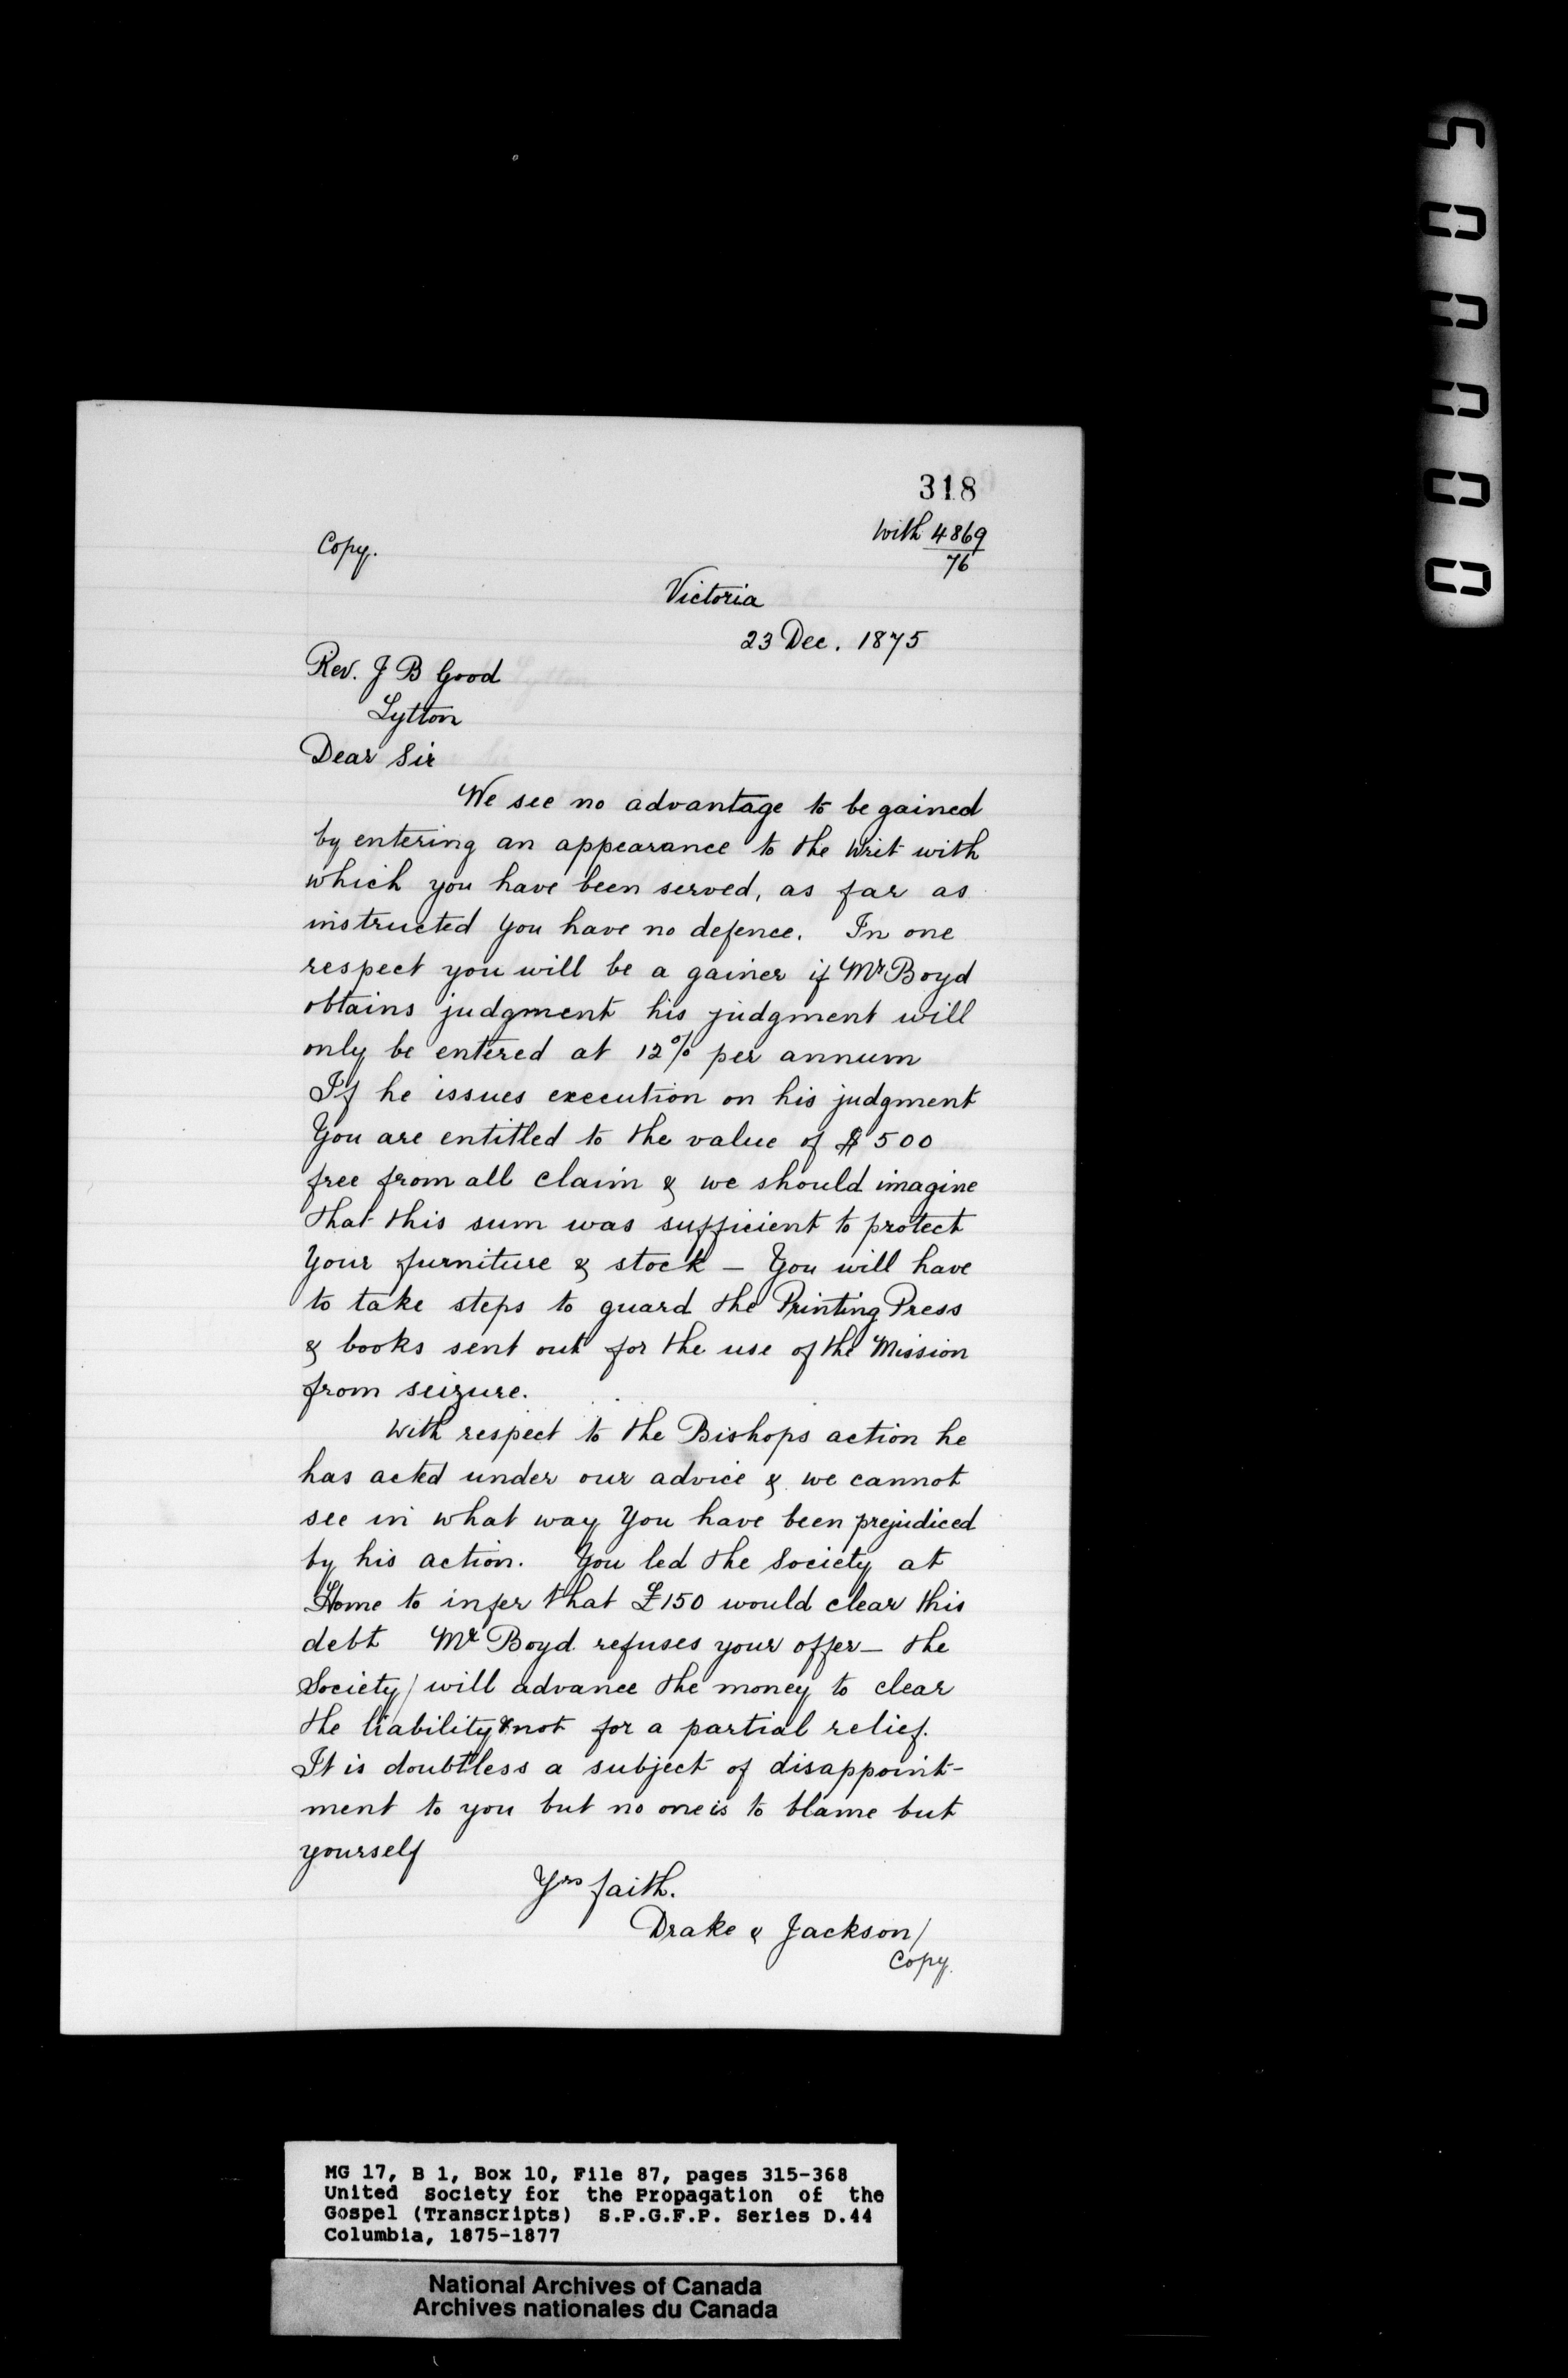 318
with 4869
76
Copy.
Victoria
23 Dec. 1875
Rev. J B Good
Lytton
Dear Sir
We see no advantage to be gained
by entering an appearance to the Writ with
which you have been served, as far as
instructed you have no defence. In one
respect you will be a gainer if Mr Boyd
obtains judgment his judgment will
only be entered at 12% per annum
If he issues execution on his judgment
You are entitled to the value of $500
free from all claim & we should imagine
that this sum was sufficient to protect
your furniture & stock — You will have
to take steps to guard the Printing Press
& books sent out for the use of the Mission
from seizure.
With respect to the Bishops action he
has acted under our advice & we cannot
see in what way you have been prejudiced
by his action. You led the Society at
Home to infer that £150 would clear this
debt Mr Boyd refuses your offer — the
Society / will advance the money to clear
the liability & not for a partial relief.
It is doubtless a subject of disappoint-
ment to you but no one is to blame but
yourself
Yrs faith.
Drake & Jackson /
Copy.
MG 17, B 1, Box 10, File 87, pages 315-368
United Society for the Propagation of the
Gospel (Transcripts) S.P.G.F.P. Series D.44
Columbia, 1875-1877
National Archives of Canada
Archives nationales du Canada
500000